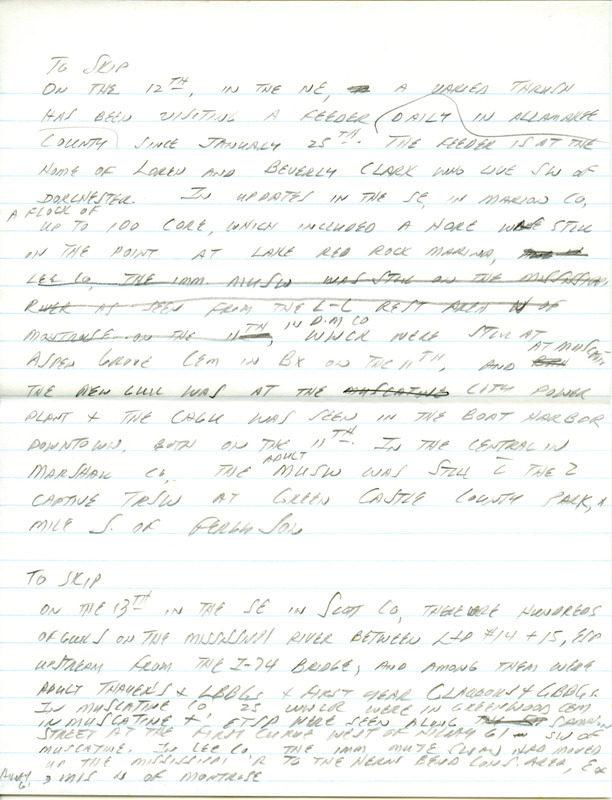 TO SKIP
ON THE 12TH, IN THE NE, A VARIED THRUSH
HAS BEEN VISITING A FEEDER DAILY IN ALLAMAKEE
COUNTY SINCE JANUARY 25TH. THE FEEDER IS AT THE
HOME OF LOREN AND BEVERLY CLARK WHO LIVE SW OF
DORCHESTER. IN UPDATES IN THE SE, IN MARION CO,
A FLOCK OF
UP TO 100 CORE, WHICH INCLUDED A HORE WERE STILL
ON THE POINT AT LAKE RED ROCK MARINA,
LEE CO, THE IMM. MUSW WAS STILL ON THE MISSISSIPPI
RIVER AS SEEN FROM THE L-L REST AREA N OF
MONTROSE ON THE 11TH, IN D.M CO WWCR WERE STILL AT
ASPEN GROVE CEM IN BX ON THE 11TH, AND AT MUSCATINE
THE HEN GULL WAS AT THE MUSCATINE CITY POWER
PLANT + THE CAGU WAS SEEN IN THE BOAT HARBOR
DOWNTOWN, BOTH ON THE 11TH. IN THE CENTRAL IN
MARSHALL CO, THE ADULT MUSW WAS STILL C THE 2
CAPTIVE TRSW AT GREEN CASTLE COUNTY PARK, A
MILE S. OF FERGUSON
TO SKIP
ON THE 13TH IN THE SE IN SCOTT CO, THERE WERE HUNDREDS
OF GULLS ON THE MISSISSIPPI RIVER BETWEEN L+D #14 + 15, ESP
UPSTREAM FROM THE I-74 BRIDGE, AND AMONG THEM WERE
ADULT THAYER'S + LBBGS + FIRST YEAR GLAUCOUS + GBBGS.
IN MUSCATINE CO, 25 WWCR WERE IN GREENWOOD CEM
IN MUSCATINE + ETSP WERE SEEN ALONG
STREET AT THE FIRST CURVE WEST OF HIWAY 61 SW OF
MUSCATINE. IN LEE CO, THE IMM. MUTE SWAN HAD MOVED
UP THE MISSISSIPPI R TO THE HERON BEND CONS. AREA, E OF
HIWAY 61 3 MIS N OF MONTROSE